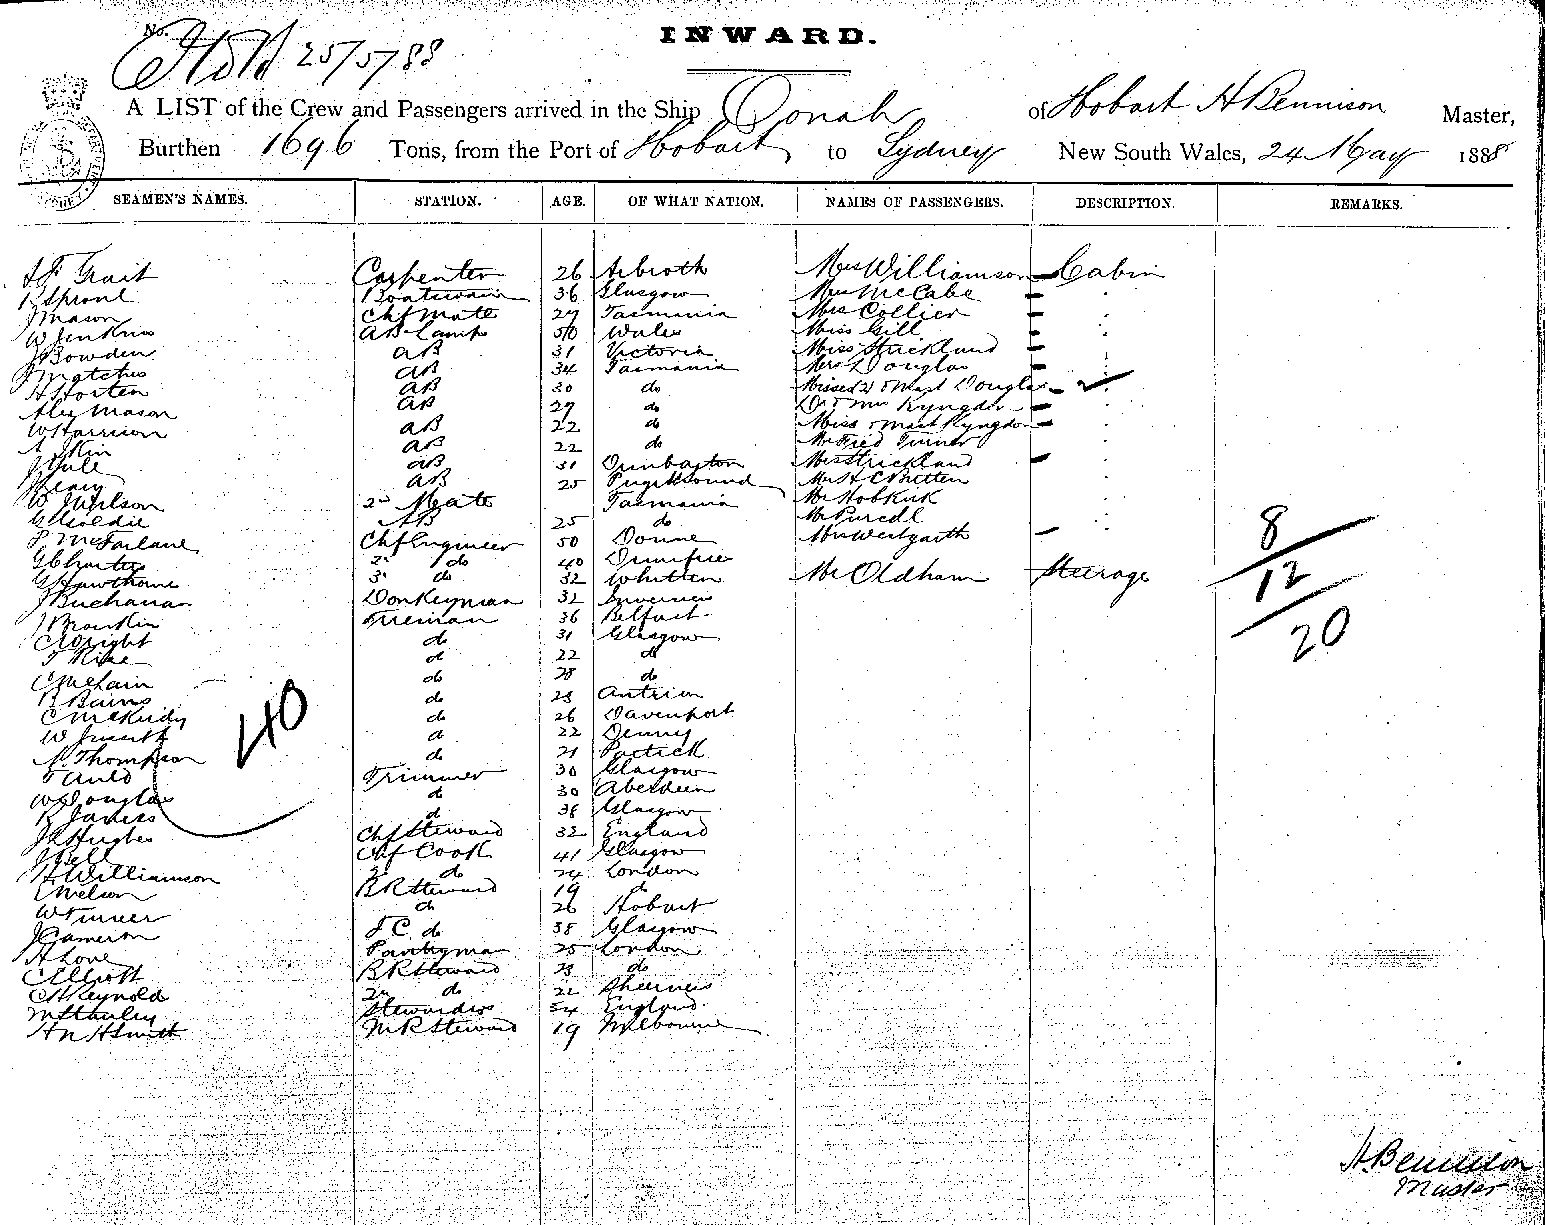 No.
25/5/88
INWARD.
A LIST of the Crew and Passengers arrived in the Ship Oonah of Hobart H Bennison Master,
Burthen 1696 Tons, from the Port of Hobart to Sydney New South Wales, 24 May 1888
SEAMEN'S NAMES. STATION. AGE. OF WHAT NATION. NAMES OF PASSENGERS. DESCRIPTION. REMARKS.
Carpenter 26 Arbroth Mrs Williamson Cabin
R Sproul Boatswain 36 Glasgow Mrs McCabe
J Mason Chf Mate 27 Tasmania Mrs Collier
W Jenkins AB Lamps 50 Wales Miss Gill
J Bowden AB 31 Victoria Miss Strickland
J Matches AB 34 Tasmania Mrs Douglas
H Horten AB 30 do Misses 2 & Mast Douglas
Alex Mason AB 27 do Dr & Mrs Kyngdon
W Harrison AB 22 do Miss & Mast Kyngdon
AB 22 do Mr Fred Turner
J Yule AB 31 Dunbarton Mrs Strickland
AB 25 Mr H C Britten
W J Wilson 2nd Mate Tasmania Mr Hobkirk
G Goldie AB 25 do Mr Purcell
P McFarlane Chf Engineer 50 Doune Mrs Westgarth 8
2n do 40 Dumfries
G Hawthorne 3n do 32 Mr Oldham Steerage 12
J Buchanan Donkeyman 32 Inverness
J Brankin Fireman 36 Belfast 20
C Wright do 31 Glasgow
do 22 do
do 28 do
R Bains do 23 Antrim
C McKirdy do 26 Davenport 40
W Smith do 22 Denny
A Thompson do 21 Partick
T Auld Trimmer 30 Glasgow
W Douglas do 30 Aberdeen
R James do 38 Glasgow
J Hughes Chf Steward 32 England
J Bell Chf Cook 41 Glasgow
H Williamson 2n do 24 London
C Nelson BR Steward 19 do
W Turner do 26 Hobart
J Cameron F C do 38 Glasgow
H Love Pantryman 25 London
C Elliott BR Steward 23 do
C H Reynold 2n do 22 Sheerness
M Stanley Stewardess 54 England
H N H Smith MR Steward 19 Melbourne
H Bennison
Master